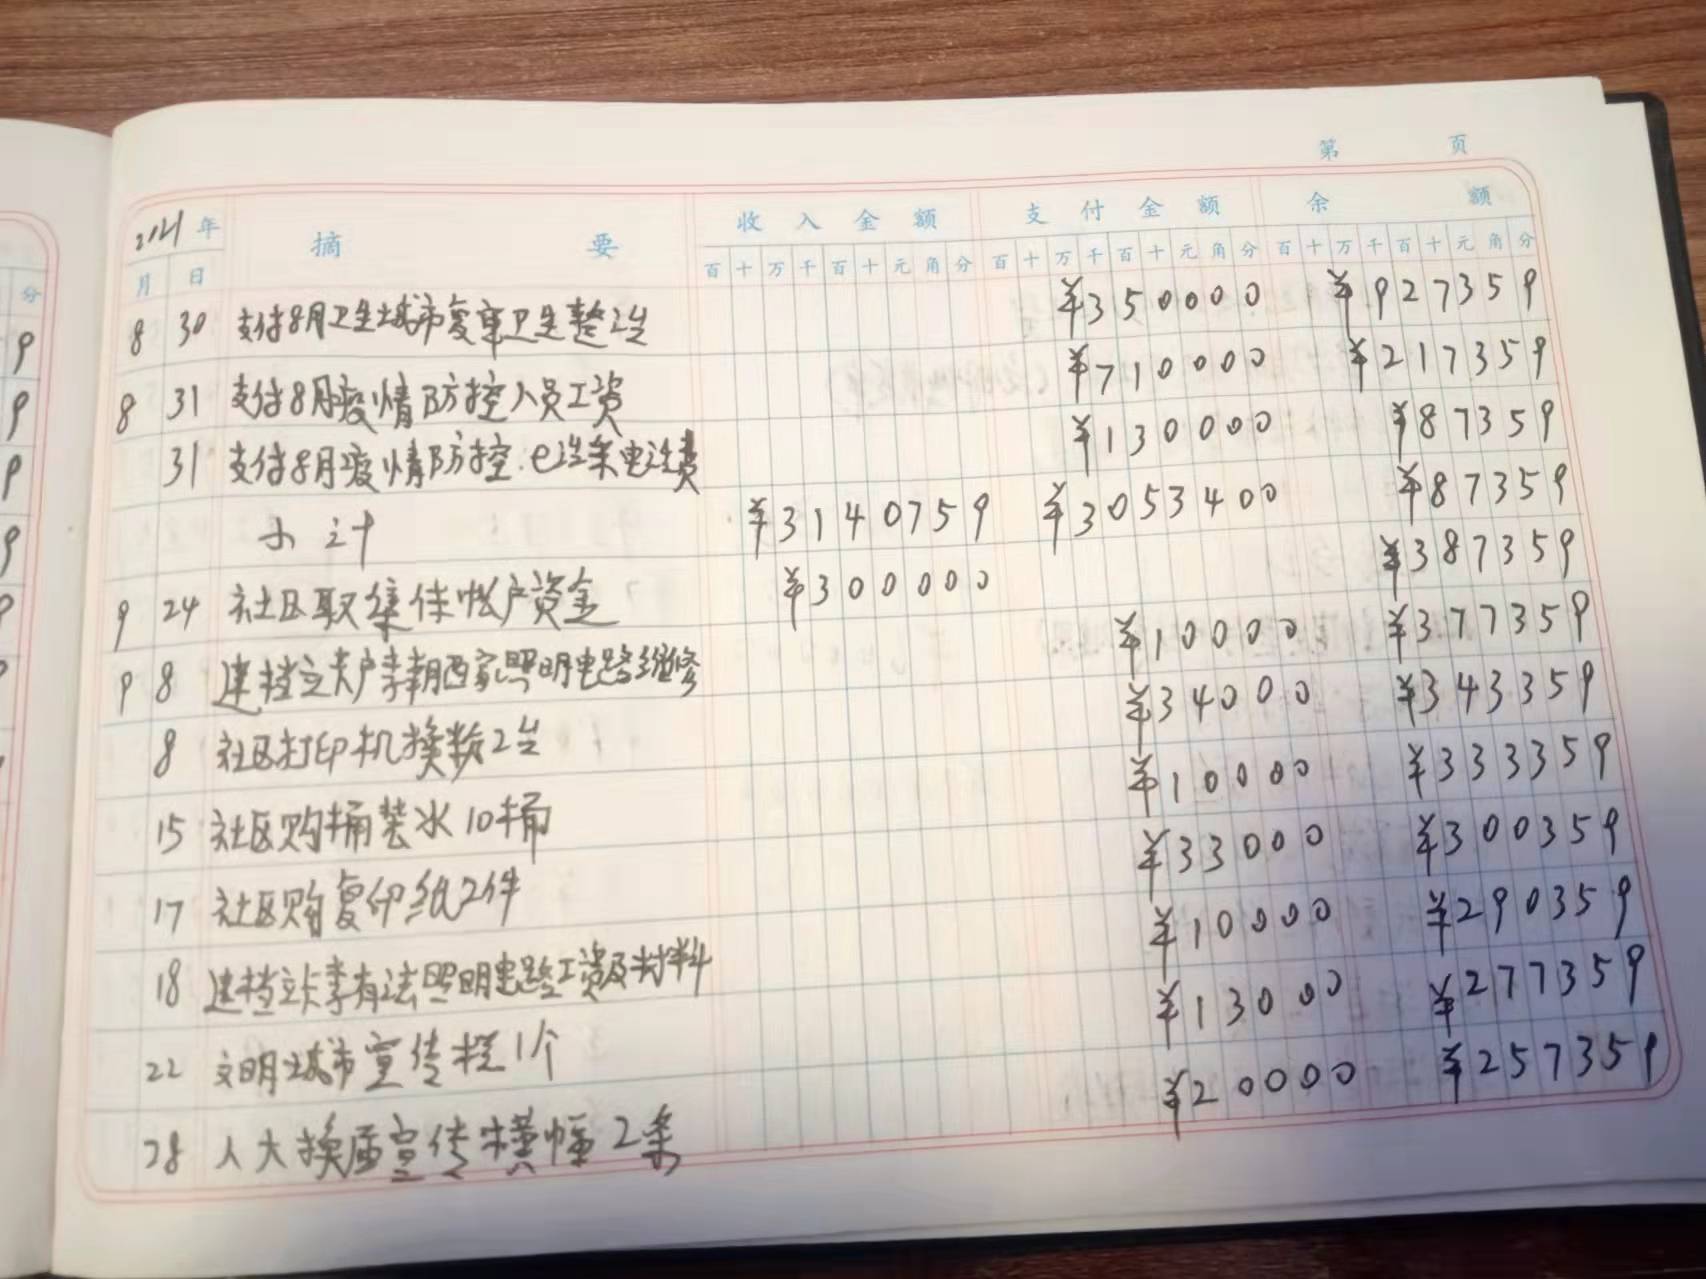 第 页
2021年 摘 要 收入金额 支付金额 余 额
月 日 百十万千百十元角分 百十万千百十元角分 百十万千百十元角分
8 30 支付8月卫生城市复审卫生整治 ¥350000 ¥927359
8 31 支付8月疫情防控人员工资 ¥710000 ¥217359
31 支付8月疫情防控 电话费 ¥130000 ¥87359
小计 ¥3140759 ¥3053400 ¥87359
9 24 社区取集体帐户资金 ¥300000 ¥387359
9 8 建档立卡户李朝西家照明电路维修 ¥10000 ¥377359
8 社区打印机换粉2台 ¥34000 ¥343359
15 社区购桶装水10桶 ¥10000 ¥333359
17 社区购复印纸2件 ¥33000 ¥300359
18 建档立卡李有法照明电路工资及材料 ¥10000 ¥290359
22 文明城市宣传栏1个 ¥13000 ¥277359
28 人大换届宣传横幅2条 ¥20000 ¥257359
分
9
9
9
9
9